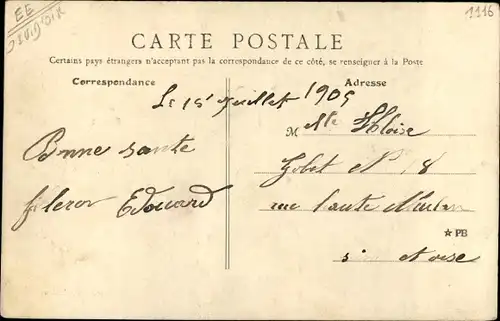 EE
1116
CARTE POSTALE
Certains pays étrangers n'acceptant pas la correspondance de ce côté, se renseigner à la Poste
Correspondance
Adresse
Le 15 Juillet 1905
M elle
Bonne sante
Edouard
Gobet N 18
rue haute
★ PB
et oise